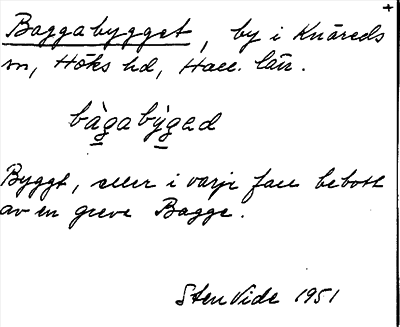 Baggabygget, by i Knäreds
sn, Höks hd, Hall. län.
bàgabýged
Byggt, eller i varje fall bebott
av en greve Bagge.
Sten Vide 1951